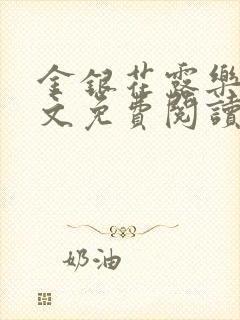 金銀花露樂
文免費閱讀
奶油